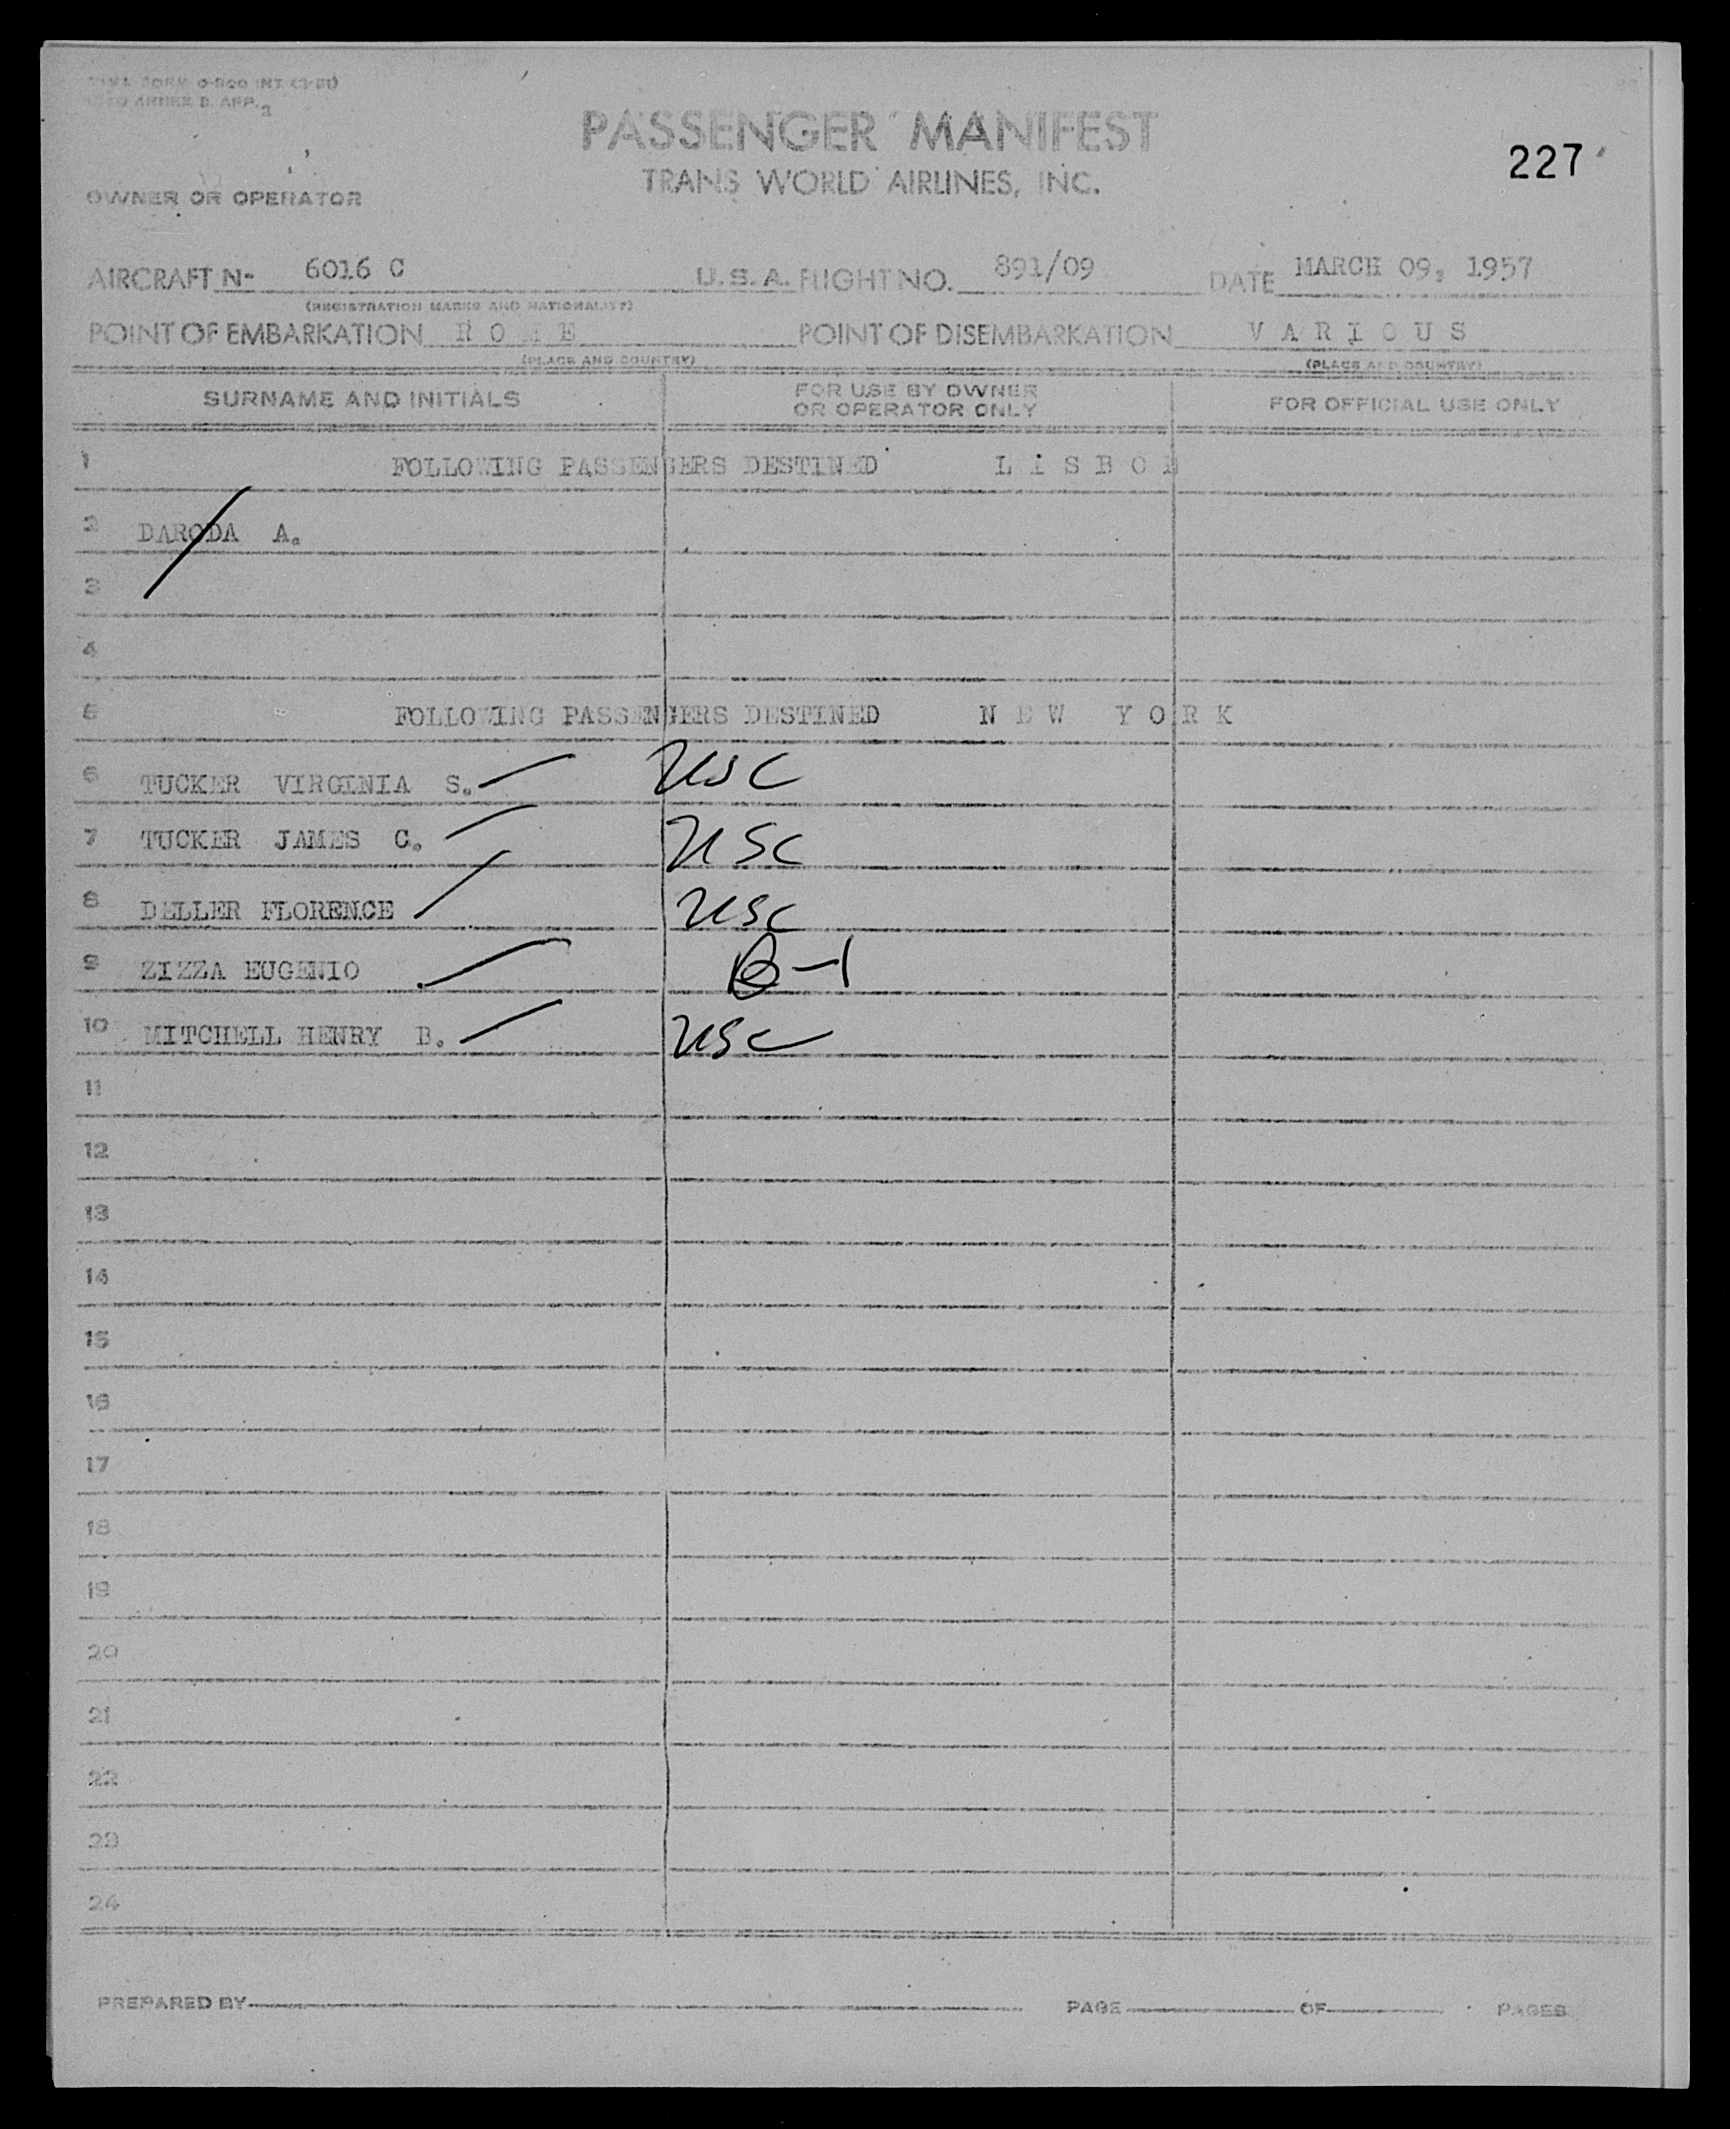 TWA FORM O-200 INT (3-51)
ICAO ANNEX 9. APP. 3
PASSENGER MANIFEST
227
TRANS WORLD AIRLINES, INC.
OWNER OR OPERATOR
AIRCRAFT No 6016 C U.S.A. FLIGHT NO. 891/09 DATE MARCH 09, 1957
(REGISTRATION MARKS AND NATIONALITY)
POINT OF EMBARKATION R O M E POINT OF DISEMBARKATION V A R I O U S
(PLACE AND COUNTRY) (PLACE AND COUNTRY)
SURNAME AND INITIALS FOR USE BY OWNER OR OPERATOR ONLY FOR OFFICIAL USE ONLY
1 FOLLOWING PASSENGERS DESTINED L I S B O N
2 DARODA A.
3
4
5 FOLLOWING PASSENGERS DESTINED N E W Y O R K
6 TUCKER VIRGINIA S. USC
7 TUCKER JAMES C. USC
8 DELLER FLORENCE USC
9 ZIZZA EUGENIO B-1
10 MITCHELL HENRY B. USC
11
12
13
14
15
16
17
18
19
20
21
22
23
24
PREPARED BY PAGE OF PAGES